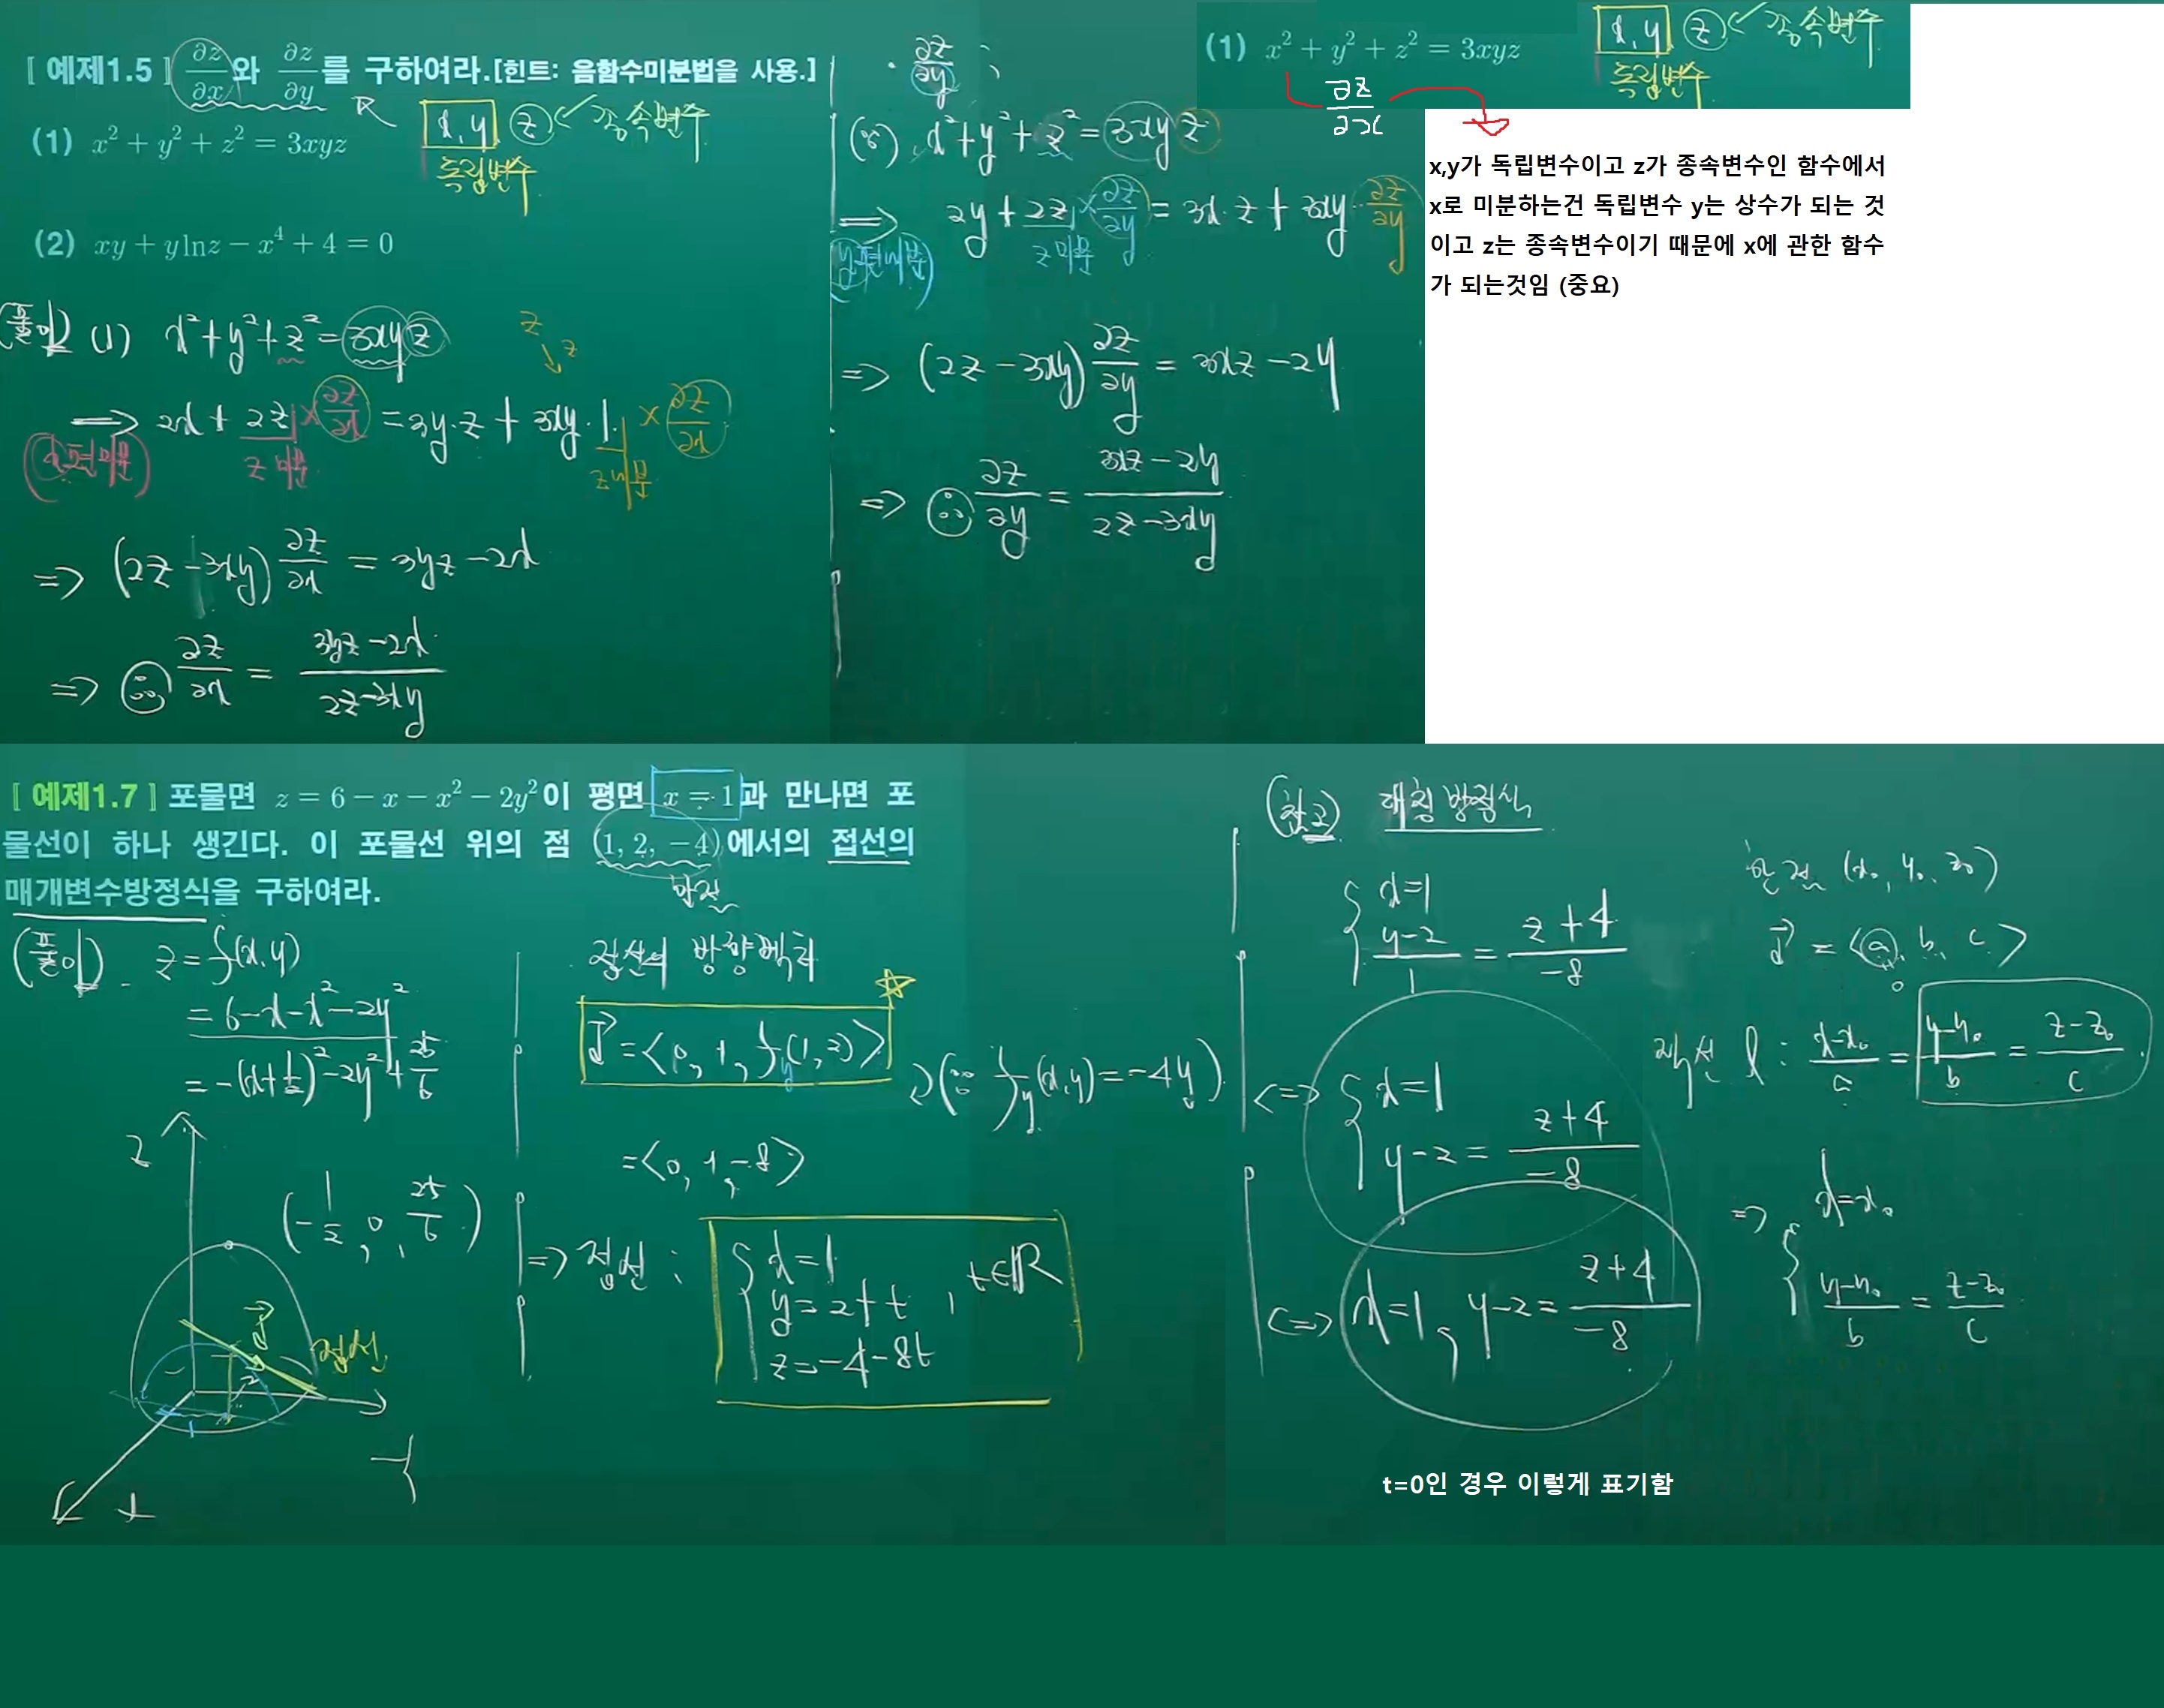 [ 예제1.5 ] ∂z/∂x 와 ∂z/∂y 를 구하여라.[힌트: 음함수미분법을 사용.]
(1) x² + y² + z² = 3xyz
x, y z ✓ 종속변수
독립변수
(2) xy + y ln z − x⁴ + 4 = 0
(풀이) (1) x² + y² + z² = 3xyz
z
z
⟹ 2x + 2z × ∂z/∂x = 3y·z + 3xy·1 × ∂z/∂x
(x로 편미분) z 미분 z 미분
⟹ (2z − 3xy) ∂z/∂x = 3yz − 2x
⟹ ∴ ∂z/∂x = (3yz − 2x)/(2z − 3xy)
· ∂z/∂y ;
(∵) x² + y² + z² = 3xyz
⟹ 2y + 2z × ∂z/∂y = 3x·z + 3xy · ∂z/∂y
z 미분
⟹ (2z − 3xy) ∂z/∂y = 3xz − 2y
⟹ ∴ ∂z/∂y = (3xz − 2y)/(2z − 3xy)
(1) x² + y² + z² = 3xyz
x, y z ✓ 종속변수
독립변수
∂z/∂x
x,y가 독립변수이고 z가 종속변수인 함수에서
x로 미분하는건 독립변수 y는 상수가 되는 것
이고 z는 종속변수이기 때문에 x에 관한 함수
가 되는것임 (중요)
[ 예제1.7 ] 포물면 z = 6 − x − x² − 2y² 이 평면 x = 1 과 만나면 포
물선이 하나 생긴다. 이 포물선 위의 점 (1, 2, −4) 에서의 접선의
매개변수방정식을 구하여라.
한점
(풀이) z = f(x, y)
= 6 − x − x² − 2y²
= −(x + 1/2)² − 2y² + 25/6
z
(−1/2, 0, 25/6)
d
접선
2
1
y
x
접선의 방향벡터
d = <0, 1, f_y(1, 2)>
(∵ f_y(x, y) = −4y)
= <0, 1, −8>
⟹ 접선 : { x = 1
y = 2 + t , t∈ℝ
z = −4 − 8t
(참고) 대칭방정식
{ x = 1
(y−2)/1 = (z+4)/−8
⟺ { x = 1
y − 2 = (z+4)/−8
⟺ x = 1, y − 2 = (z+4)/−8
한점 (x₀, y₀, z₀)
d = <a, b, c>
0
직선 l : (x−x₀)/a = (y−y₀)/b = (z−z₀)/c
⟹ { x = x₀
(y−y₀)/b = (z−z₀)/c
t=0인 경우 이렇게 표기함